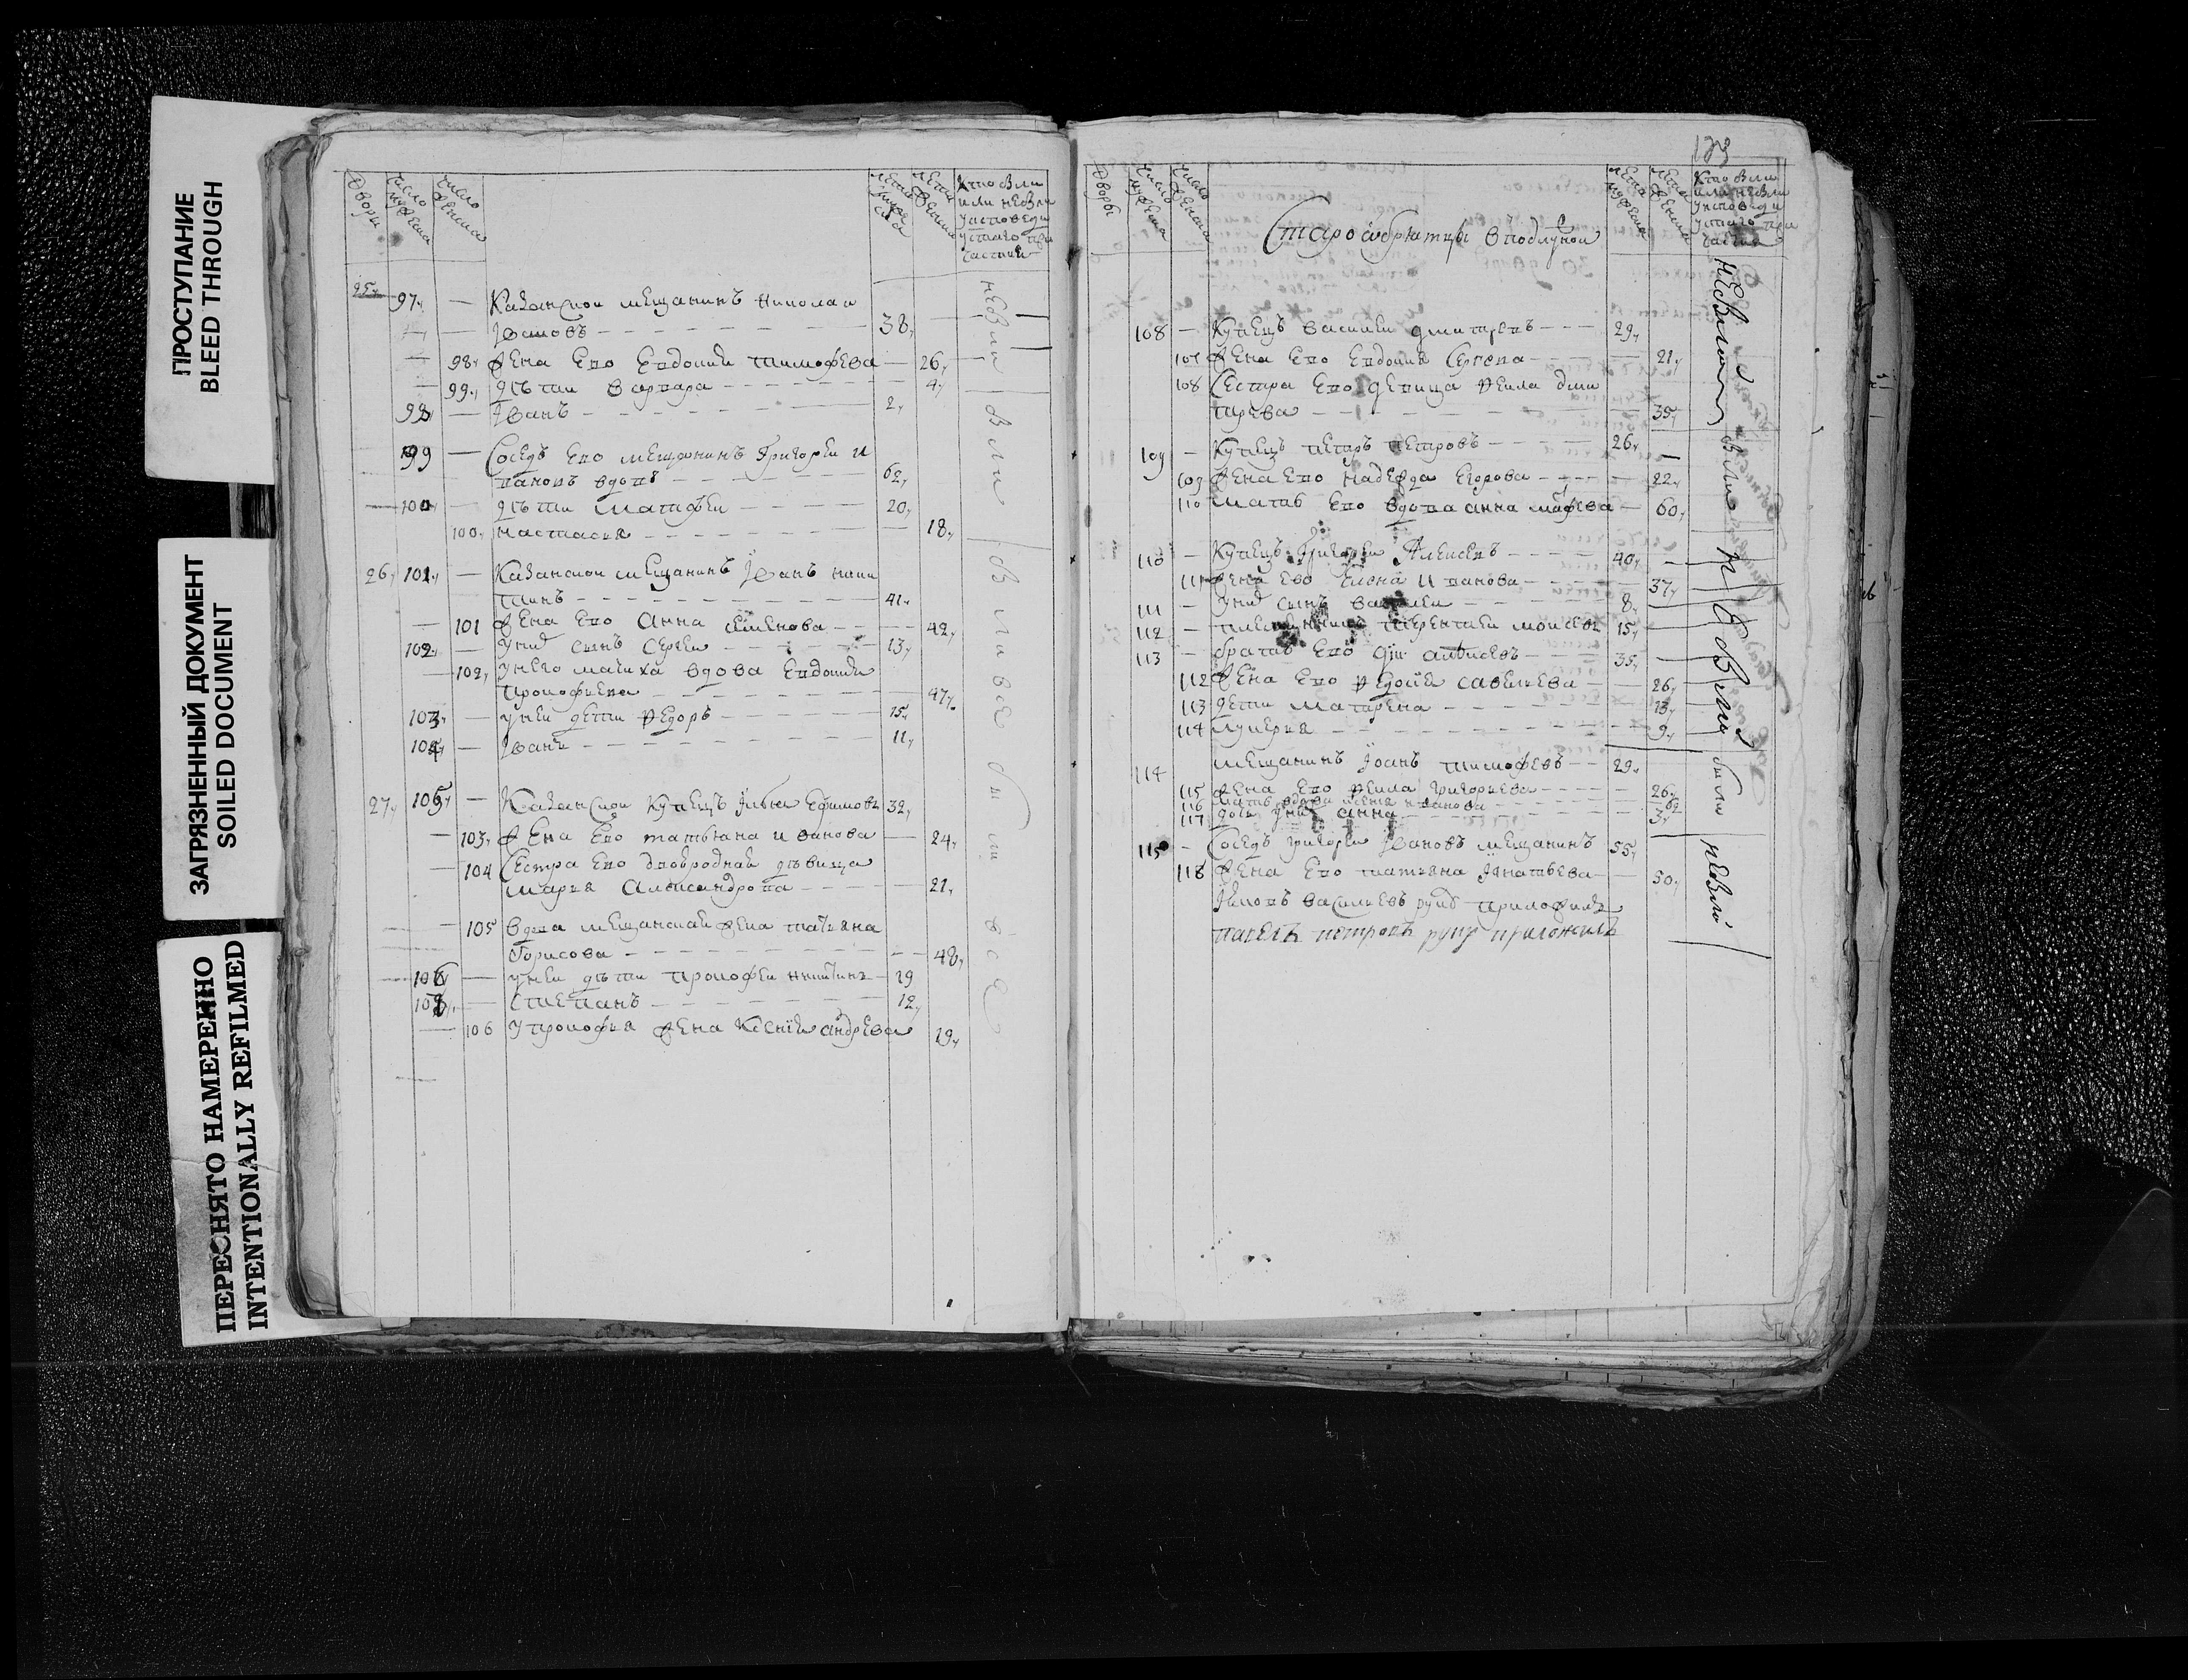 ПРОСТУПАНИЕ
BLEED THROUGH
ЗАГРЯЗНЕННЫЙ ДОКУМЕНТ
SOILED DOCUMENT
ПЕРЕСНЯТО НАМЕРЕННО
INTENTIONALLY REFILMED
Дворы
число мужеска
число женска
лета мужеска
лета женска
Кто были
или небыли
у исповеди
у стаго при
частия
25 97 — Казанской мещанинъ Николаи
38
98 жена ево Евдокия тимофева — 26
99 дѣти варвара 4
98 — Іванъ 2
99 — Соседъ ево мещанинъ Григореи и
вановъ вдовъ 62
100 — дѣти Матфеи 20
100 настасия 18
26 101 — Казанской мещанинъ Іванъ ники
тинъ 41
101 жена ево Анна семенова 42
102 — у них сынъ Сергеи 13
102 у него мачиха вдова Евдокия
прокофиева 47
103 — у неи дети Федоръ 15
104 — Іванъ 11
27 105 — Казанской купецъ Илья Ефимовъ 32
103 жена ево татьяна иванова 24
104 Сестра ево двоюродная дѣвица
Мария Александрова 21
105 вдова мещанская жена татияна
Борисова 48
106 — у неи дѣти прокофеи никитинъ 29
107 — Степанъ 12
106 у прокофия жена Ксения андрева 19
небыли
были
были все
были
все
173
Дворы
число мужеска
число женска
лета мужеска
лета женска
Кто были
или небыли
у исповеди
у стаго при
частия
108 — купецъ василеи дмитревъ 29
107 жена ево Евдокия Сергева 21
108 Сестра ево девица Фекла дми
трева 35
109 — купецъ петръ петровъ 26
109 жена ево надежда Егорова 22
110 мать ево вдова анна 60
110 — купецъ Григореи Алексевъ 40
111 жена ево Елена иванова 37
111 — у них сынъ василеи 8
112 — племянникъ терентеи моисевъ 15
113 — братъ ево алексевъ 35
112 жена ево Федосия савельева 26
113 дети матрена 13
114 лукерия 9
114 мещанинъ Іоанъ тимофевъ 29
115 жена ево Фекла григорьева 26
116 мать вдова иванова
117 дочь у них анна 3
115 — Соседъ григореи Івановъ мещанинъ 55
118 жена ево татияна Игнатьева 50
василиевъ руку приложилъ
павелъ петровъ руку приложилъ
небыли
были
были
были
небыли